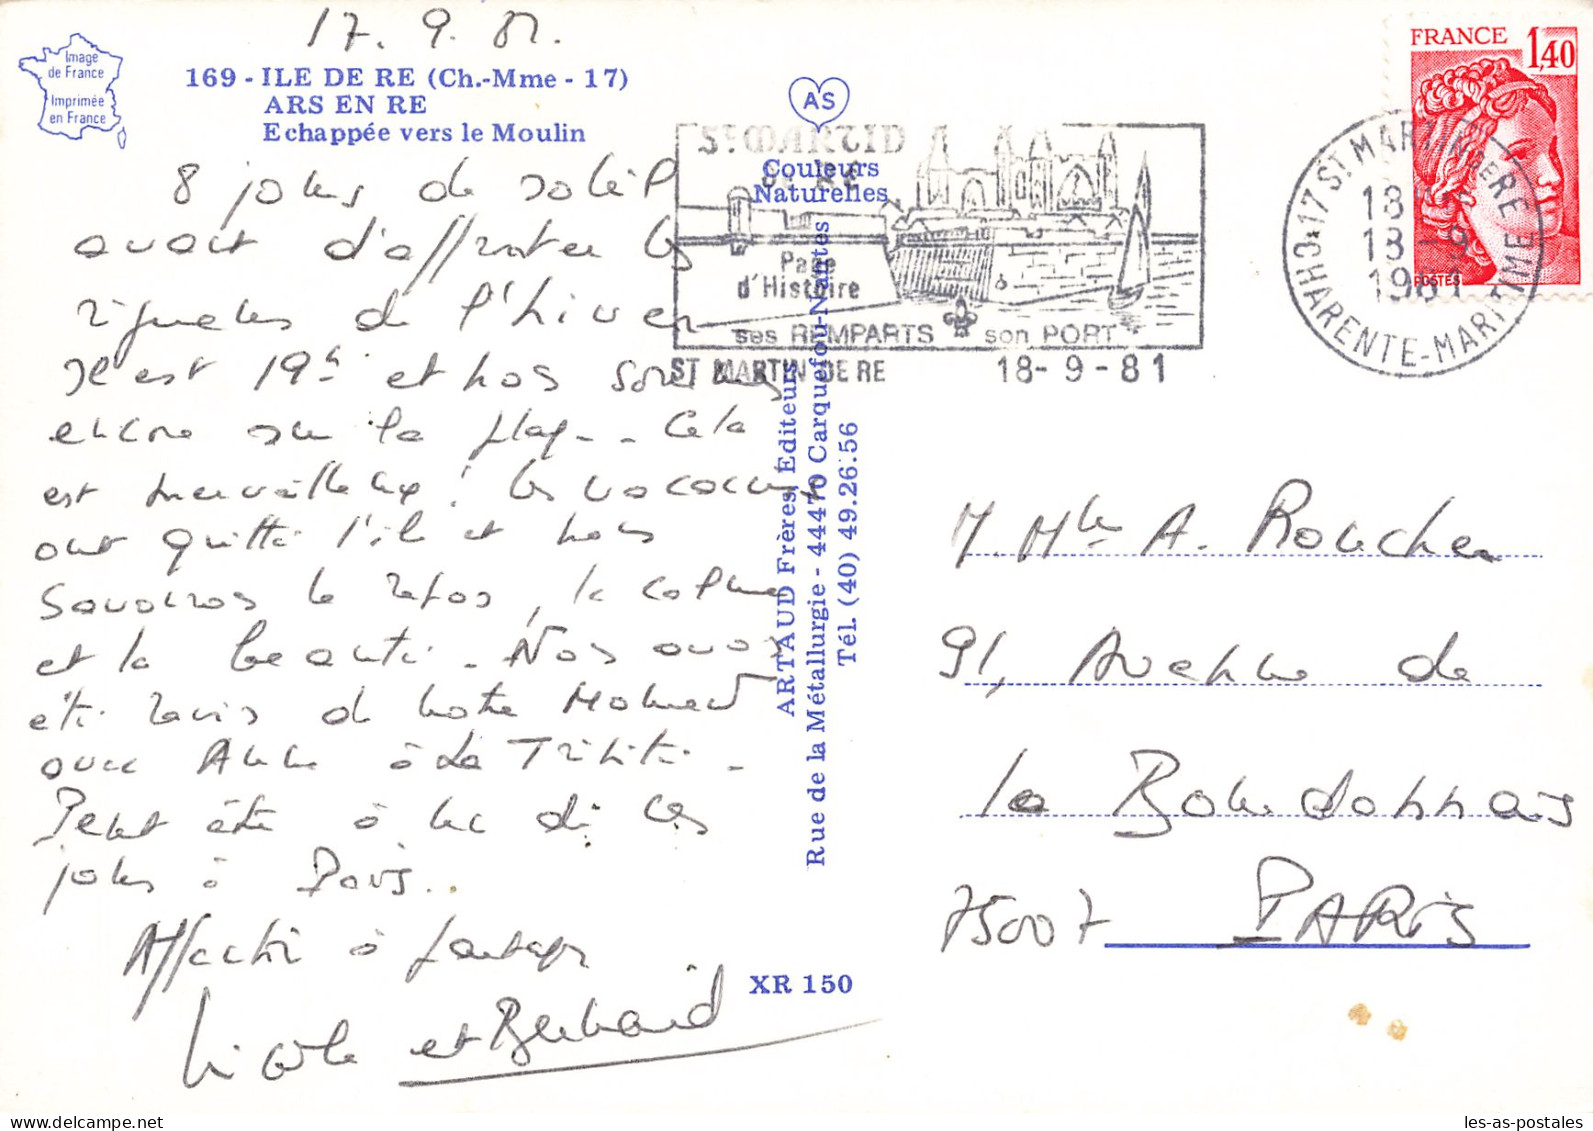 17.9.81.
Image
de France
Imprimée
en France
169 - ILE DE RE (Ch.-Mme - 17)
ARS EN RE
Echappée vers le Moulin
8 jours de soleil
avant d'affronter les
rigueurs de l'hiver
Il est 19h et nos sommes
encore sur la plage.. Cela
est merveilleux! les vacanciers
ont quitté l'île et nos
savourons le repos, le calme
et la beauté. Nos avons
été ravis de notre moment
avec Anne à La Trinité.
Peut être à un de ces
jours à Paris..
Affection à partager
Nicole et Bernard
AS
Couleurs
Naturelles
ARTAUD Frères, Editeurs
Rue de la Métallurgie - 44470 Carquefou-Nantes
Tél. (40) 49.26.56
XR 150
St MARTIN
de RÉ
Page
d'Histoire
ses REMPARTS son PORT
ST MARTIN DE RE 18-9-81
17 ST MARTIN DE RE
18 H
18 - 9
1981
CHARENTE-MARITIME
FRANCE 1,40
POSTES
M. Mle A. Roucher
91, Avenue de
la Bourdonnais
75007 PARIS
les-as-postales